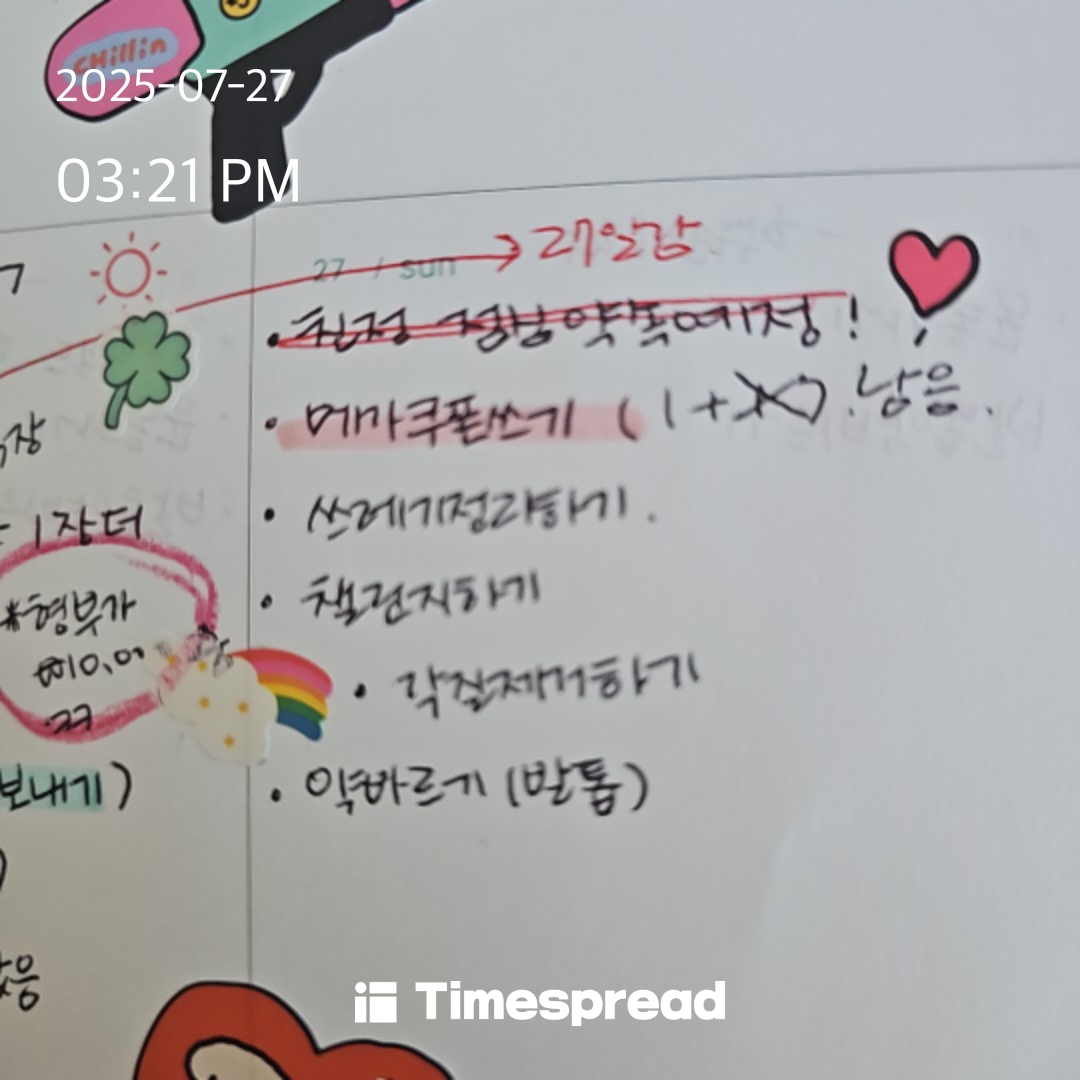 CHillin
2025-07-27
03:21 PM
27일감
27 / sun
친정 예정!
메가쿠폰쓰기 (1+ ) 남음.
쓰레기정리하기.
챌린지하기
각질제거하기
약바르기 (발톱)
7
1장더
*형부가
₩10,00
보내기)
Timespread